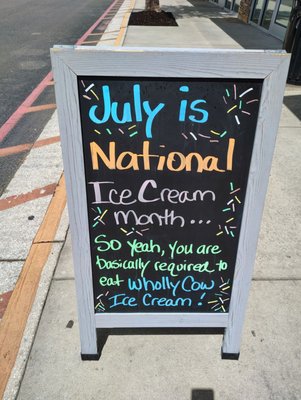 July is
National
Ice Cream
month...
So yeah, you are
basically required to
eat Wholly Cow
Ice Cream!